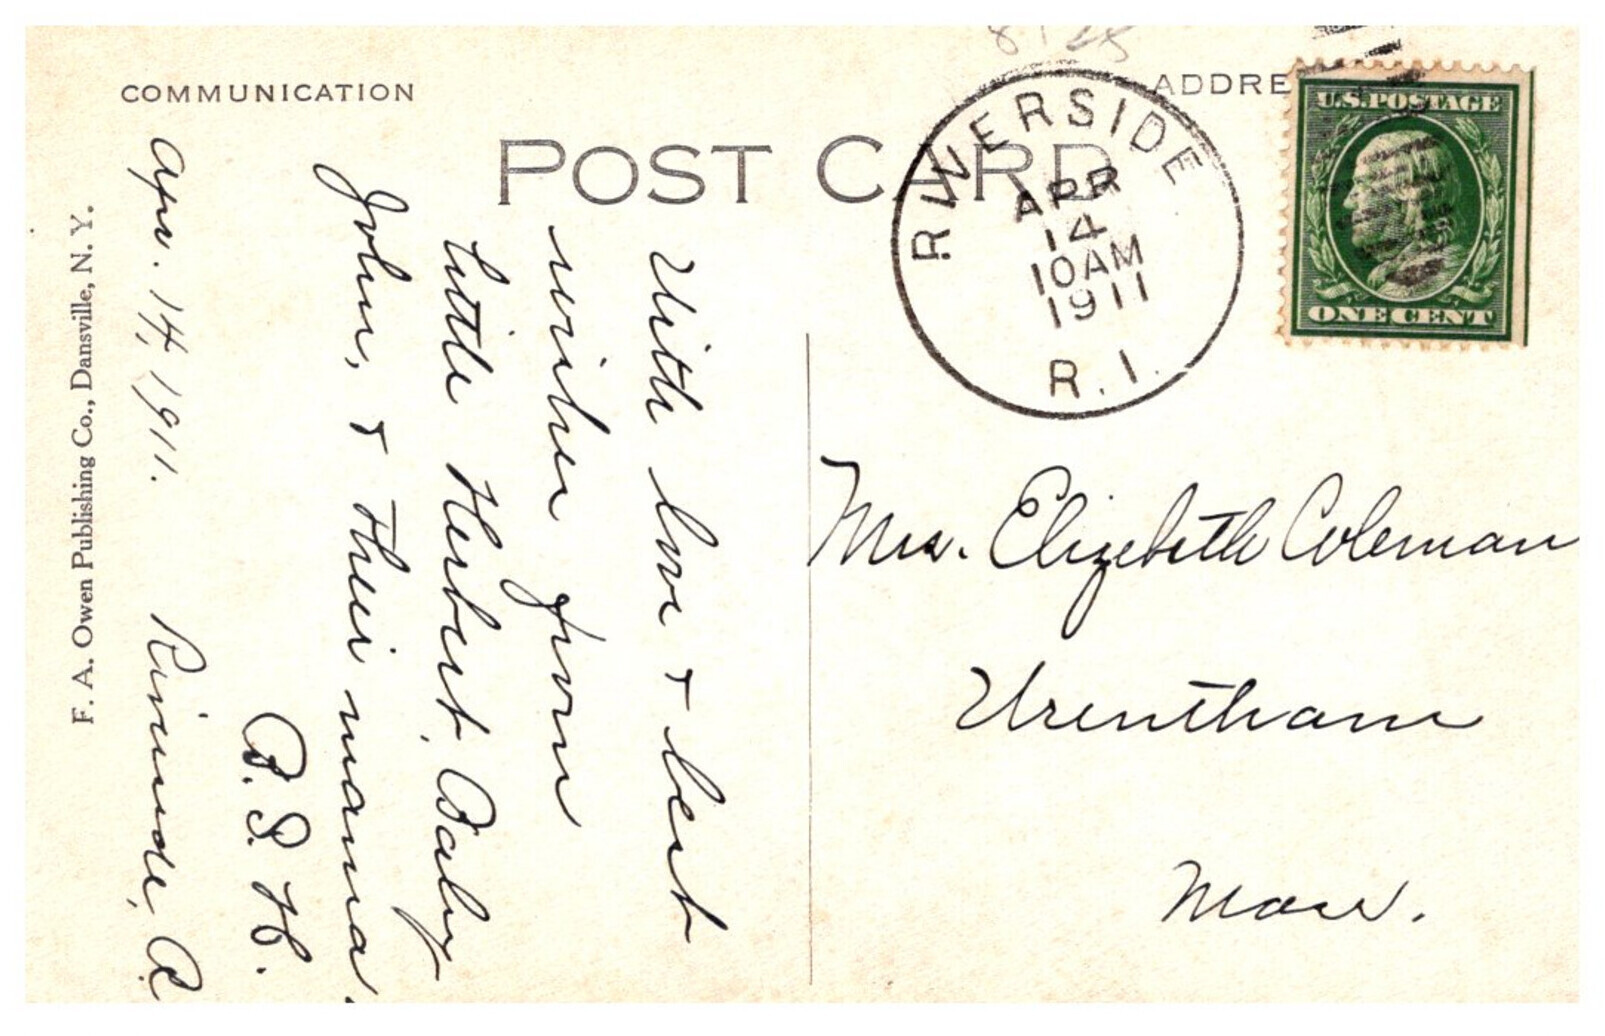 COMMUNICATION
POST CARD
ADDRE
F. A. Owen Publishing Co., Dansville, N. Y.
RIVERSIDE
APR
14
10AM
1911
R.I.
U.S. POSTAGE
ONE CENT
Apr. 14, 1911. Riverside, R.
With love + best
wishes from
little Herbert, Baby
John, + their mama.
B. S. H.
Mrs. Elizabeth Coleman
Wrentham
Mass.